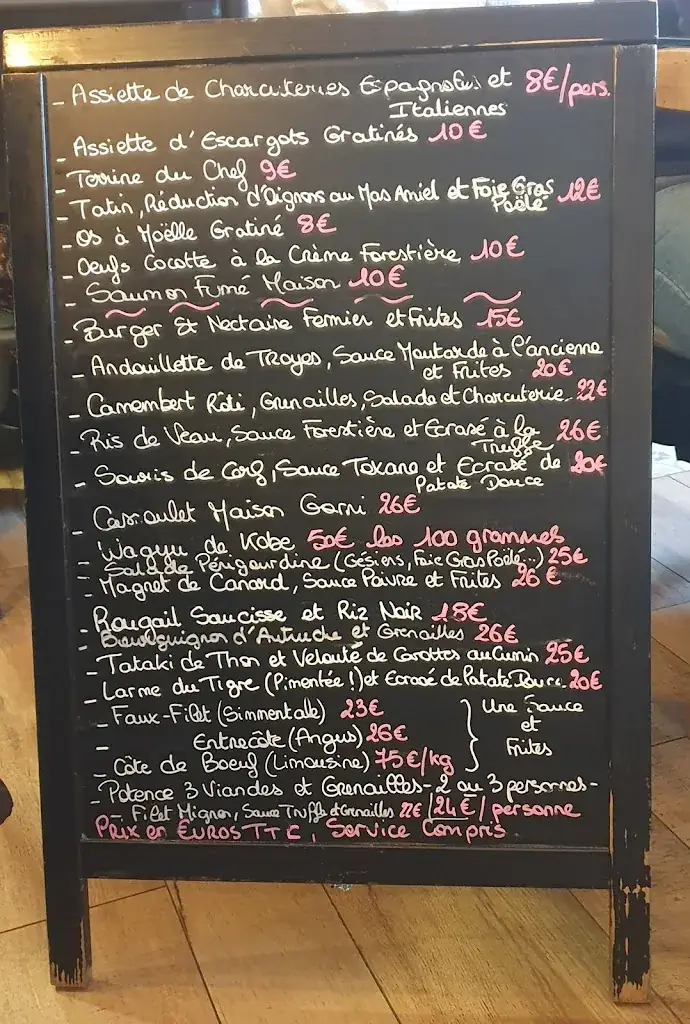 - Assiette de Charcuteries Espagnoles et 8€/pers.
Italiennes
- Assiette d'Escargots Gratinés 10€
- Terrine du Chef 9€
- Tatin, Réduction d'Oignons au Mas Amiel et Foie Gras 12€
Poëlé
- Os à Moëlle Gratiné 8€
- Oeufs Cocotte à la Crème Forestière 10€
- Saumon Fumé Maison 10€
- Burger St Nectaire Fermier et Frites 15€
- Andouillette de Troyes, Sauce Moutarde à l'ancienne
et Frites 20€
- Camembert Rôti, Grenailles, Salade et Charcuterie 22€
- Ris de Veau, Sauce Forestière et Ecrasé à la 26€
Truffe
- Souris de Cerf, Sauce Toxane et Ecrasé de 20€
Patate Douce
- Cassoulet Maison Garni 26€
- Wagyu de Kobe 50€ les 100 grammes
- Salade Périgourdine (Gésiers, Foie Gras Poêlé..) 25€
- Magret de Canard, Sauce Poivre et Frites 26€
- Rougail Saucisse et Riz Noir 18€
- Bourguignon d'Autruche et Grenailles 26€
- Tataki de Thon et Velouté de Carottes au Cumin 25€
- Larme du Tigre (Pimentée !) et Ecrasé de Patate Douce 20€
- Faux-Filet (Simmentale) 23€ Une Sauce
- Entrecôte (Angus) 26€ et
- Côte de Boeuf (Limousine) 75€/kg Frites
- Potence 3 Viandes et Grenailles - 2 ou 3 personnes -
- Filet Mignon, Sauce Truffe et Grenailles 22€ 24€/personne
Prix en Euros TTC, Service Compris.